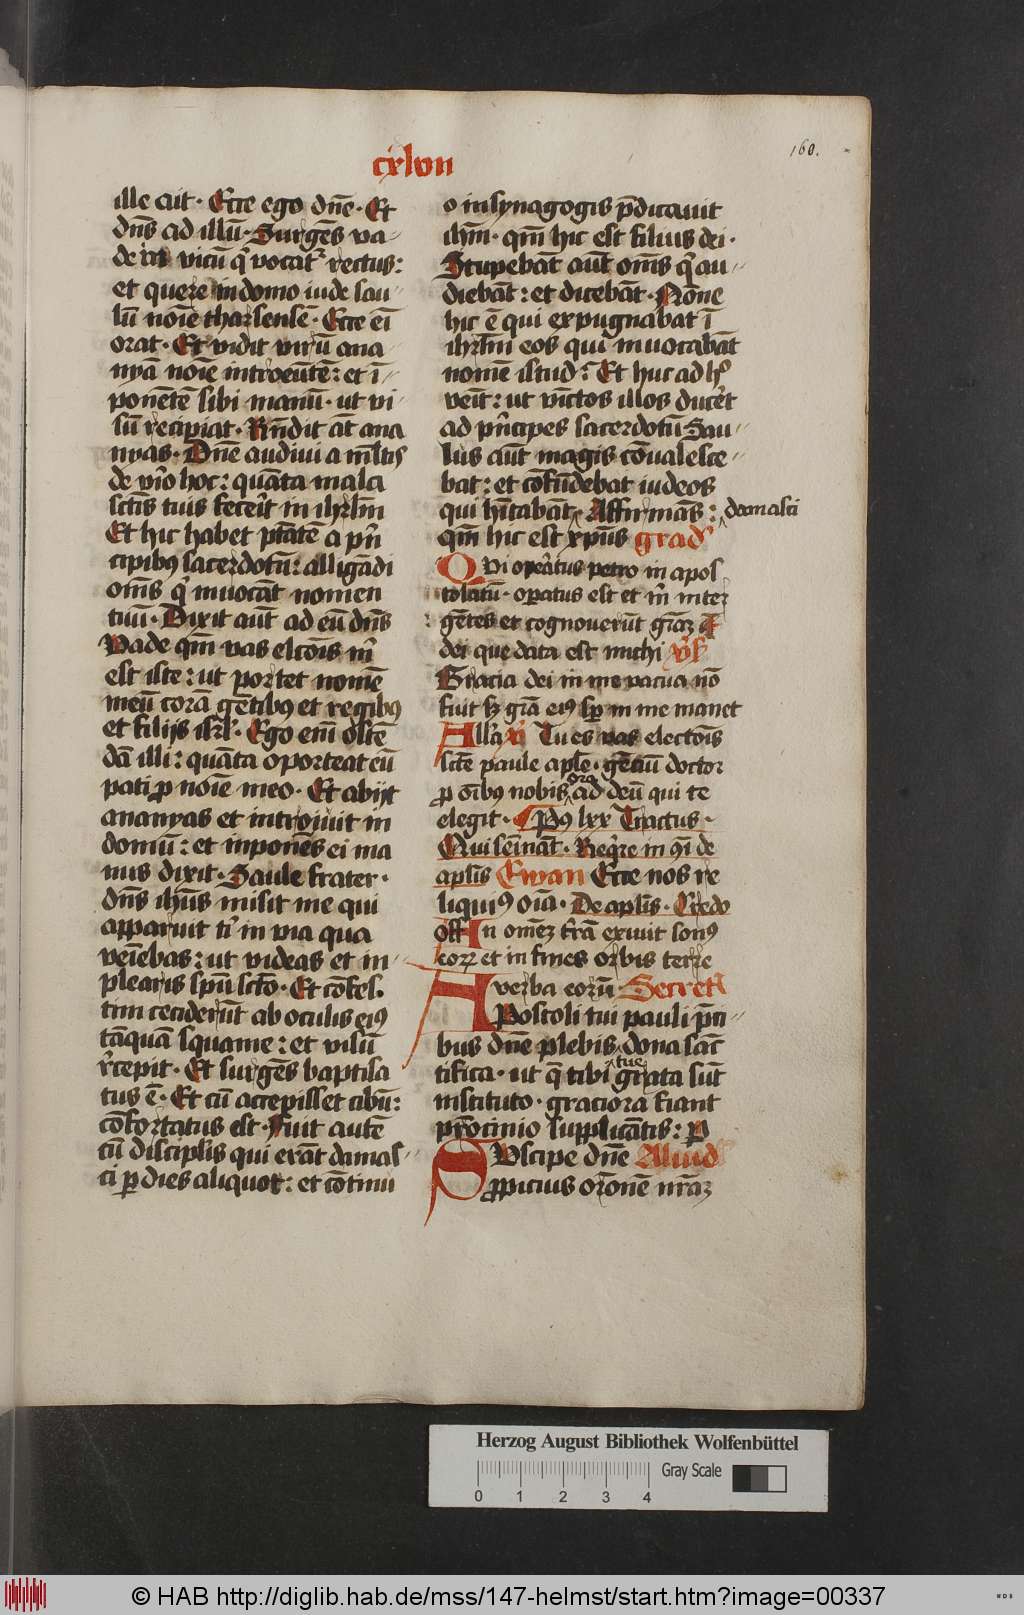 160.
cxlvii
ille ait · Ecce ego dn̄e · Et
dn̄s ad illū · Surgēs va-
de in vicū q̄ vocat᷑ rectus:
et quere in domo iude sau-
lū noīe tharsensē · Ecce eī
orat · Et vidit virū ana
nyā noīe introeūtē: et ī-
ponētē sibi manū · ut vi-
sū recipiat · Rn̄dit āt ana
nyas · Dn̄e audiui a ml̄tis
de viro hoc: quāta mala
sctīs tuis fecerit in ihrlm̄
Et hic habet ptātē a pn̄
cipibꝰ sacerdotū: alligādi
om̄s q̄ inuocāt nomen
tuū · Dixit aūt ad eū dn̄s
Vade qm̄ vas elcōis m̄
est iste: ut portet nomē
meū corā gētibꝰ et regibꝰ
et filijs isrl · Ego enī ostē
dā illi: quāta oporteat eū
pati p noīe meo · Et abijt
ananyas et introiuit in
domū: et inponēs ei ma
nus dixit · Saule frater ·
dn̄s ihūs misit me qui
apparuit tī in via qua
veīebas: ut videas et in-
plearis spū scto · Et cōfes.
tim ceciderūt ab oculis eiꝰ
tāquā squame: et visū
recepit · Et surgēs baptisa
tus ē · Et cū accepisset cibū:
cōfortatus est · Fuit autē
cū disciplis qui erāt damas-
ci p dies aliquot: et cōtinu
o in synagogis p̄dicauit
ihm̄ · qm̄ hic est filius dei ·
Stupebāt aūt om̄s q̄ au-
diebāt: et dicebāt · Nōne
hic ē qui expugnabat ī
ihrlm̄ eos qui inuocabāt
nomē istud: Et huc ad hͦ
veīt: ut vīctos illos ducēt
ad pn̄cipes sacerdotū Sau-
lus aūt magis cōualesce-
bat: et cōfūdebat iudeos
qui hītabāt · Affirmās: damasci
qm̄ hic est xpus grad᷒
Qvi opatus petro in apos
tolatū · opatus est et m̄ inter
gētes et cognouerūt grāꝫ
dei que data est michi v̉s
Gracia dei in me vacua nō
fuit sꝫ grā eiꝰ sp in me manet
All'a v̉ Tu es vas electōis
scte paule aple · gētiū doctor
p oībꝰ nobis ora ad deū qui te
elegit · Pꝰ lxx Tractus ·
Qui semīāt · Reqre in qī de
aplīs Ewan Ecce nos re
liquiꝰ oīa · De aplīs · Credo
off In omēꝫ tr̄ā exiuit sonꝰ
eorꝫ et in fines orbis terre
verba eorū Secret
APostoli tui pauli p̄ci-
bus dn̄e plebis tue dona sāc
tifica · ut q̄ tibi grata sūt
instituto · graciora fiant
pr̄ocinio supplicātis: p
SVscipe dn̄e Aliud
propicius orōnē nrāꝫ
Herzog August Bibliothek Wolfenbüttel
Gray Scale
0 1 2 3 4
© HAB http://diglib.hab.de/mss/147-helmst/start.htm?image=00337